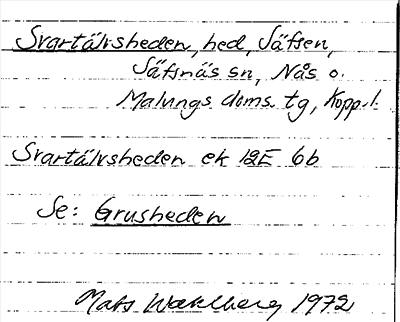 Svartälvsheden, hed, Säfsen,
Säfsnäs sn, Nås o.
Malungs doms. tg, Kopp. l.
Svartälvsheden ek 12E 6b
Se: Grusheden
Mats Wahlberg 1972